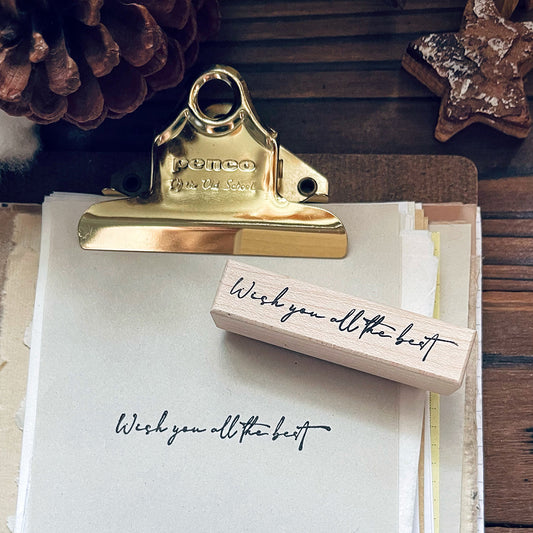 penco
by the Old School
Wish you all the best
Wish you all the best